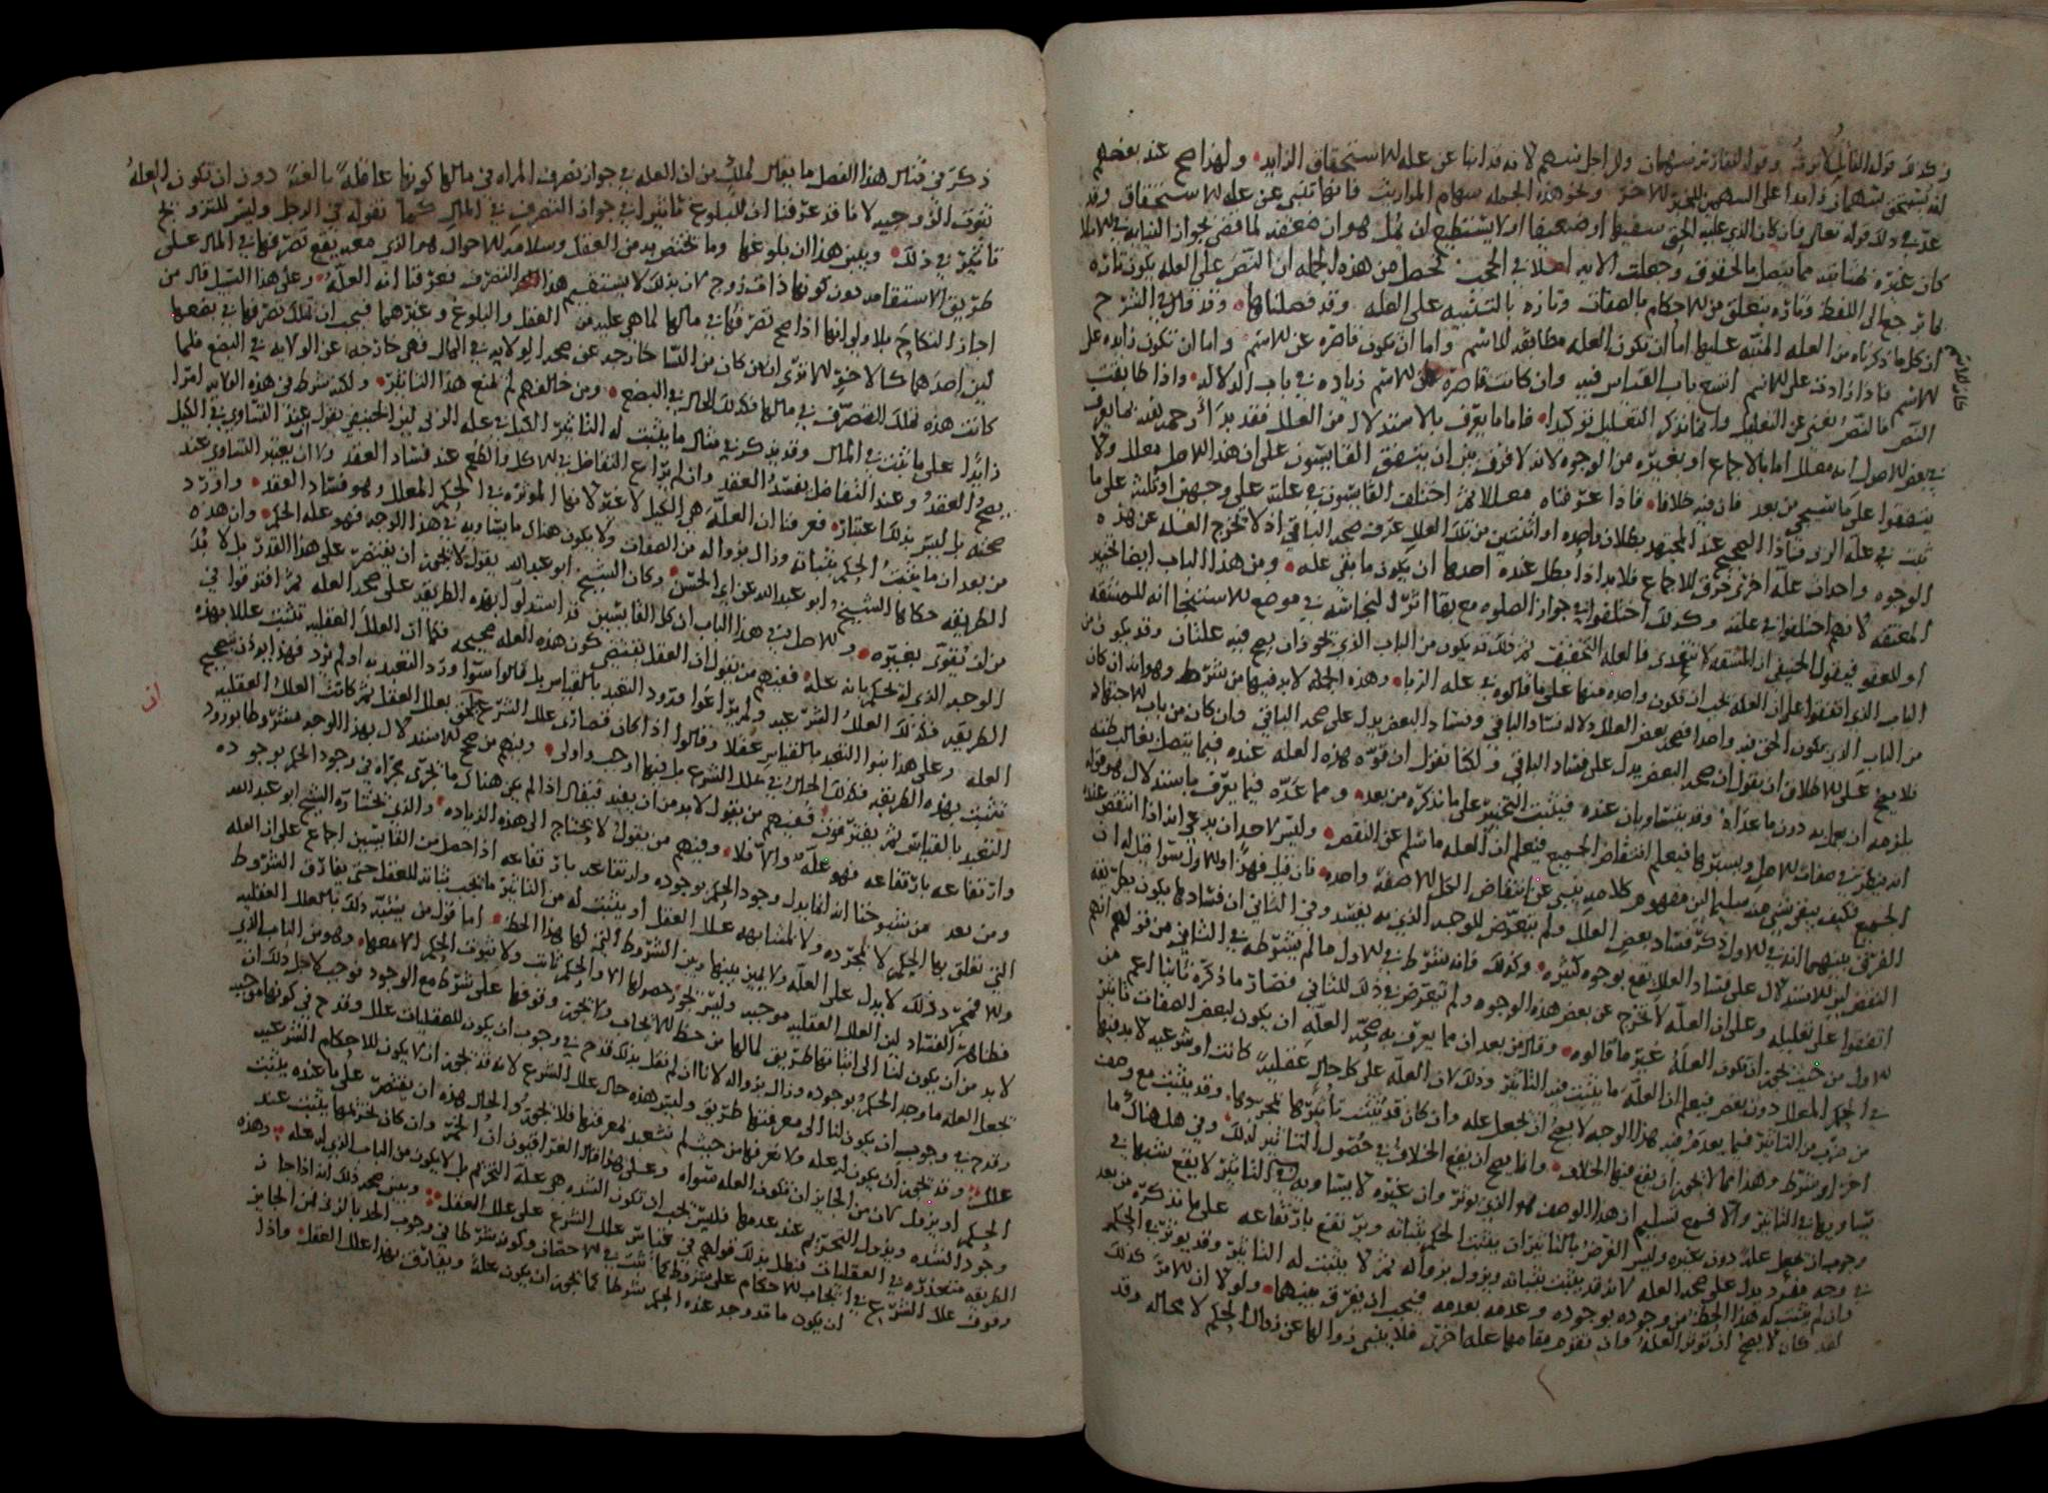 وكذلك قوله القاتل لا يرث وقوله للفارس سهمان وللراجل سهم لانه قد انبا عن علة للاستحقاق الزايد ولهذا صح عند بعضهم
سهام المواريث فانها تنبي عن علة للاستحقاق وقد
عد في ذلك قوله تعالى فان كان الذي عليه الحق سفيها او ضعيفا او لا يستطيع ان يمل هو
ان النص على العلة يكون تارة
بما يرجع الى اللفظ وتارة بتعلق من الاحكام بالصفات وتارة بالتنبيه على العلة وقد فصلناها وقد قال في الشرح
ان كل ما ذكرناه من العلة المنبه عليها اما ان تكون العلة مطابقة للاسم واما ان تكون قاصرة عن الاسم واما ان تكون زايدة على
الاسم فاذا زادت على الاسم اتسع باب القياس فيه وان كانت قاصرة عن الاسم زيادة في باب الدلالة واذا طابقت
النص فالنص يغني عن التعليل وانما نذكر التعليل توكيدا فاما ما يعرف بالاستدلال من العلل فقد
في بعض الاصول انه معلل اما بالاجماع او بغيره من الوجوه لانه لا فرق بين ان يتفق القايسون على ان هذا الاصل معلل ولا
يتفقوا على ما سيجي من بعد فان فيه خلافا فاذا عرفناه معللا ثم اختلف القايسون في علته على وجهين او ثلثة على ما
ثبت في علة الربا
الوجوه واحداث علة اخرى خرق للاجماع فلا بد اذا بطل عنده احدها ان يكون ما بقي علة ومن هذا الباب ايضا تخيير
المعتقة لانهم اختلفوا في علته وكذلك اختلفوا في جواز الصلوة مع بقا اثر النجاسة في موضع الاستنجا انه للمشقة
او للعفو فيقول الحنفي ان المشقة لا تتعدى فالعلة التخفيف
الباب الذي اتفقوا على ان العلة يجب ان تكون واحدة منها على ما قالوه في علة الربا وهذه الجملة لا بد فيها من شرط وهو انه ان كان
من الباب الذي يكون الحق فيه واحدا فصحة بعض العلل دلالة فساد الباقي وفساد البعض يدل على صحة الباقي وان كان من باب الاجتهاد
فلا يصح على الاطلاق ان يقول ان صحة البعض يدل على فساد الباقي ولكنا نقول ان قوة هذه العلة عنده فيما يتصل بغالب ظنه
يلزمه ان يعمل به دون ما عداه وقد يتساويان عنده فيثبت التخيير على ما نذكره من بعد ومما عده فيما يعرف باستدلال هو قوله
انه ينظر في صفات الاصل ويسبرها فيعلم انتقاض الجميع فيعلم ان العلة ما سلم عن النقض وليس لاحد ان يدعي انه اذا انتقض علة
الجميع فكيف يبقى شي منه سليما
الفرق بينهما انه في الاول ذكر فساد بعض العلل ولم يتعرض للوجه الذي به يفسد وفي الثاني ان فسادها يكون بطريقة
النقض
اتفقوا على تعليله وعلى ان العلة لا تخرج عن بعض هذه الوجوه ولم يتعرض في ذلك للثاني فصار ما ذكره ثانيا اعم من
الاول من حيث يجوز ان تكون العلة غير ما قالوه وقال من بعد ان مما يعرف به صحة العلة ان يكون لبعض الصفات تاثير
في الحكم المعلل دون بعض فيعلم ان العلة ما يثبت فيه التاثير وذلك لان العلة على كل حال عقلية كانت او شرعية لا بد فيها
من ضرب من التاثير فيما يعدم فيه هذا الوجه لا يصح ان يجعل علة وان كان قد يثبت تاثيرها بمجردها وقد يثبت مع وصف
اخر او شرط وهذا مما لا يجوز ان يقع فيه الخلاف وانما يصح ان يقع الخلاف في حصول التاثير لذلك وفي هل هناك ما
يساويها في التاثير
وجوب ان يجعل علة دون غيره وليس الغرض بالتاثير ان يثبت الحكم بثباته ويرتفع بارتفاعه على ما نذكره من بعد
في وجه مفرد يدل على صحة العلة لانه قد يثبت بثباته ويزول بزواله ثم لا يثبت له التاثير وقد يوثر في الحكم
وان لم يثبت له هذا الحظ من وجوده بوجوده وعدمه بعدمه فيجب ان يفرق بينهما ولولا ان الامر كذلك
لقد كان لا يصح ان توثر العلة وان تقوم مقامها علة اخرى فلا ينبي زوالها عن زوال الحكم لا محالة وقد
ذكر في قياس هذا الفصل ما يقال لمالك من ان العلة في جواز تصرف المراة في مالها كونها عاقلة بالغة دون ان تكون العلة
ثبوت الزوجية لانا قد عرفنا ان للبلوغ تاثيرا في جواز التصرف في المال كما نقوله في الرجل وليس للتزويج
تاثير في ذلك وبين هذا ان بلوغها وما تختص به من العقل وسلامة الاحوال هو الذي معه يقع تصرفها في المال على
طريق الاستقامة دون كونها ذات زوج لان بذلك لا يستقيم هذا التصرف فعرفنا انه العلة وعلى هذا السبيل قال من
اجاز النكاح بلا ولي انها اذا صح تصرفها في مالها لما هي عليه من العقل والبلوغ وغيرهما فيجب ان تملك تصرفها في بضعها
لان احدهما كالاخر الا ترى ان من كان من النسا خارجة عن صحة الولاية في المال فهي خارجة عن الولاية في البضع فلما
كانت هذه تملك التصرف في مالها فكذلك الحال في البضع ومن خالفهم لم يمنع هذا التاثير ولكنه شرط في هذه الولاية امرا
زايدا على ما ثبت في المال وقد يذكر في مثال ما يثبت له التاثير الكيل في علة الربا لان الحنفي يقول عند التساوي في الكيل
يصح العقد وعند التفاضل يفسد العقد وان لم يراع التفاضل في الاكل والطعم عند فساد العقد ولا ان يعتبر التساوي عند
صحته بل ليس بذلك اعتبار فعرفنا ان العلة هي الكيل لا غير لانها الموثرة في الحكم المعلل وهو فساد العقد واورد
من بعد ان ما يثبت الحكم بثباته وزال بزواله من الصفات ولا يكون هناك ما يساويه في هذا الوجه فهو علة الحكم وان هذه
الطريقة حكاها الشيخ ابو عبد الله عن ابي الحسن وكان الشيخ ابو عبد الله يقول لا يجوز ان يقتصر على هذا القدر بل لا بد
من ان تقوى بغيره والاصل في هذا الباب ان كل القايسين قد استدلوا بهذه الطريقة على صحة العلة ثم افترقوا في
الوجه الذي له نحكم بانه علة فمنهم من يقول ان العقل يقتضي كون هذه العلة صحيحة فكما ان العلل العقلية تثبت عللا بهذه
الطريقة فكذلك العلل الشرعية ولم يراعوا ورود التعبد بالقياس بل قالوا سوا ورد التعبد به او لم يرد فهذا يوذن بصحيح
العلة وعلى هذا بنوا التعبد بالقياس عقلا وقالوا اذا كان قصارى علل الشرع ان تلحق بعلل العقل ثم كانت العلل العقلية
تثبت بهذه الطريقة فكذلك الحال في علل الشرع بل فيها اوجب واولى ومنهم من صحح الاستدلال بهذا الوجه مشروطا بورود
التعبد بالقياس ثم يفترقون فمنهم من يقول لا بد من ان يقيد فيقال اذا لم يكن هناك ما يجري مجراه في وجود الحكم بوجوده
وارتفاعه بارتفاعه فهو علة والا فلا ومنهم من يقول لا يحتاج الى هذه الزيادة والذي يختاره الشيخ ابو عبد الله
ومن بعد من شيوخنا انه لا يدل وجود الحكم بوجوده وارتفاعه بارتفاعه اذا حصل من القايسين اجماع على ان العلة
التي تعلق بها الحكم لا لمجرده ولا لمشابهة علل العقل او يثبت له من التاثير ما يجب ثباته للعقل حتى يفارق الشروط
والا فمجرد ذلك لا يدل على العلة ولا يميز بينها وبين الشروط التي لها هذا الحظ اما قول من يشبه ذلك بالعلل العقلية
فظاهر الفساد لان العلل العقلية موجبة وليس يجوز حصولها الا والحكم ثابت ولا ثبوت الحكم الا معها وهو من الباب الذي
لا بد من ان يكون لنا الى اثباتها طريق لما لها من حظ الايجاب ولا يجوز وقوفها على شرط مع الوجود فوجب لاجل ذلك ان
نجعل العلة ما وجد الحكم بوجوده وزال بزواله لانا ان لم نقل بذلك قدح في وجوب ان يكون للعقليات علل وقدح في كونها موجبة
وقدح في وجوب ان يكون لنا الى معرفتها طريق وليس هذه حال علل الشرع لانه قد يجوز ان لا يكون للاحكام الشرعية
علل وقد يجوز ان يكون له علة ولا نعرفها من حيث لم نتعبد بمعرفتها فلا يجوز والحال هذه ان يقتصر على ما عنده يثبت
الحكم او يزول كان من الجايز ان تكون العلة سواه وعلى هذا قال العراقيون ان الخمر وان كان تحريمها يثبت عند
وجود الشدة ويزول التحريم عند عدمها فليس يجب ان تكون الشدة هي علة التحريم بل لا يكون من الباب الذي له علة وهذه
الطريقة متعذرة في العقليات فبطل بذلك قولهم في قياس علل الشرع على علل العقل ويبين صحة ذلك انه اذا جاز
وقوف علل الشرع في ايجاب الاحكام على شروط كما ثبت في الاحصان وكونه شرطا في وجوب الحد بالزنى فمن الجايز
ان يكون ما قد وجد عنده الحكم شرطا كما يجوز ان يكون علة ويفارق بهذا علل العقل واذا